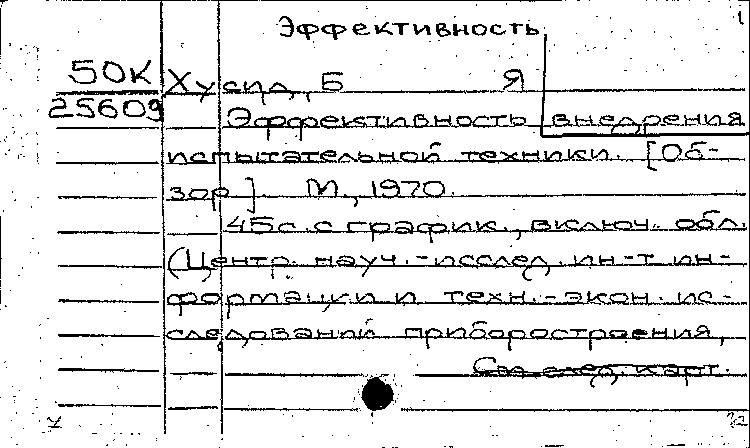 Эффективность
1
50К
25609
Хусид, Б Я
Эффективность внедрения
испытательной техники. [Об-
зор]. М., 1970.
45с. с график., включ. обл.
(Центр. науч.-исслед. ин-т ин-
формации и техн.-экон. ис-
следований приборостроения,
См. след. карт.